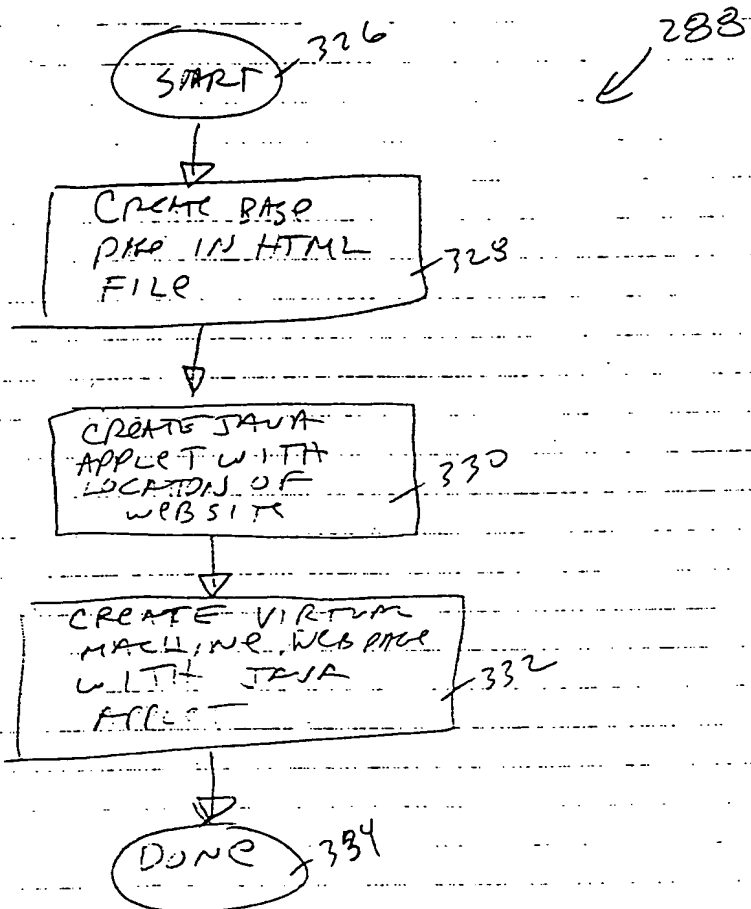 288
326
START
CREATE BASE
PAGE IN HTML
FILE
328
CREATE JAVA
APPLET WITH
LOCATION OF
WEBSITE
330
CREATE VIRTUAL
MACHINE WEB PAGE
WITH JAVA
APPLET
332
DONE
334